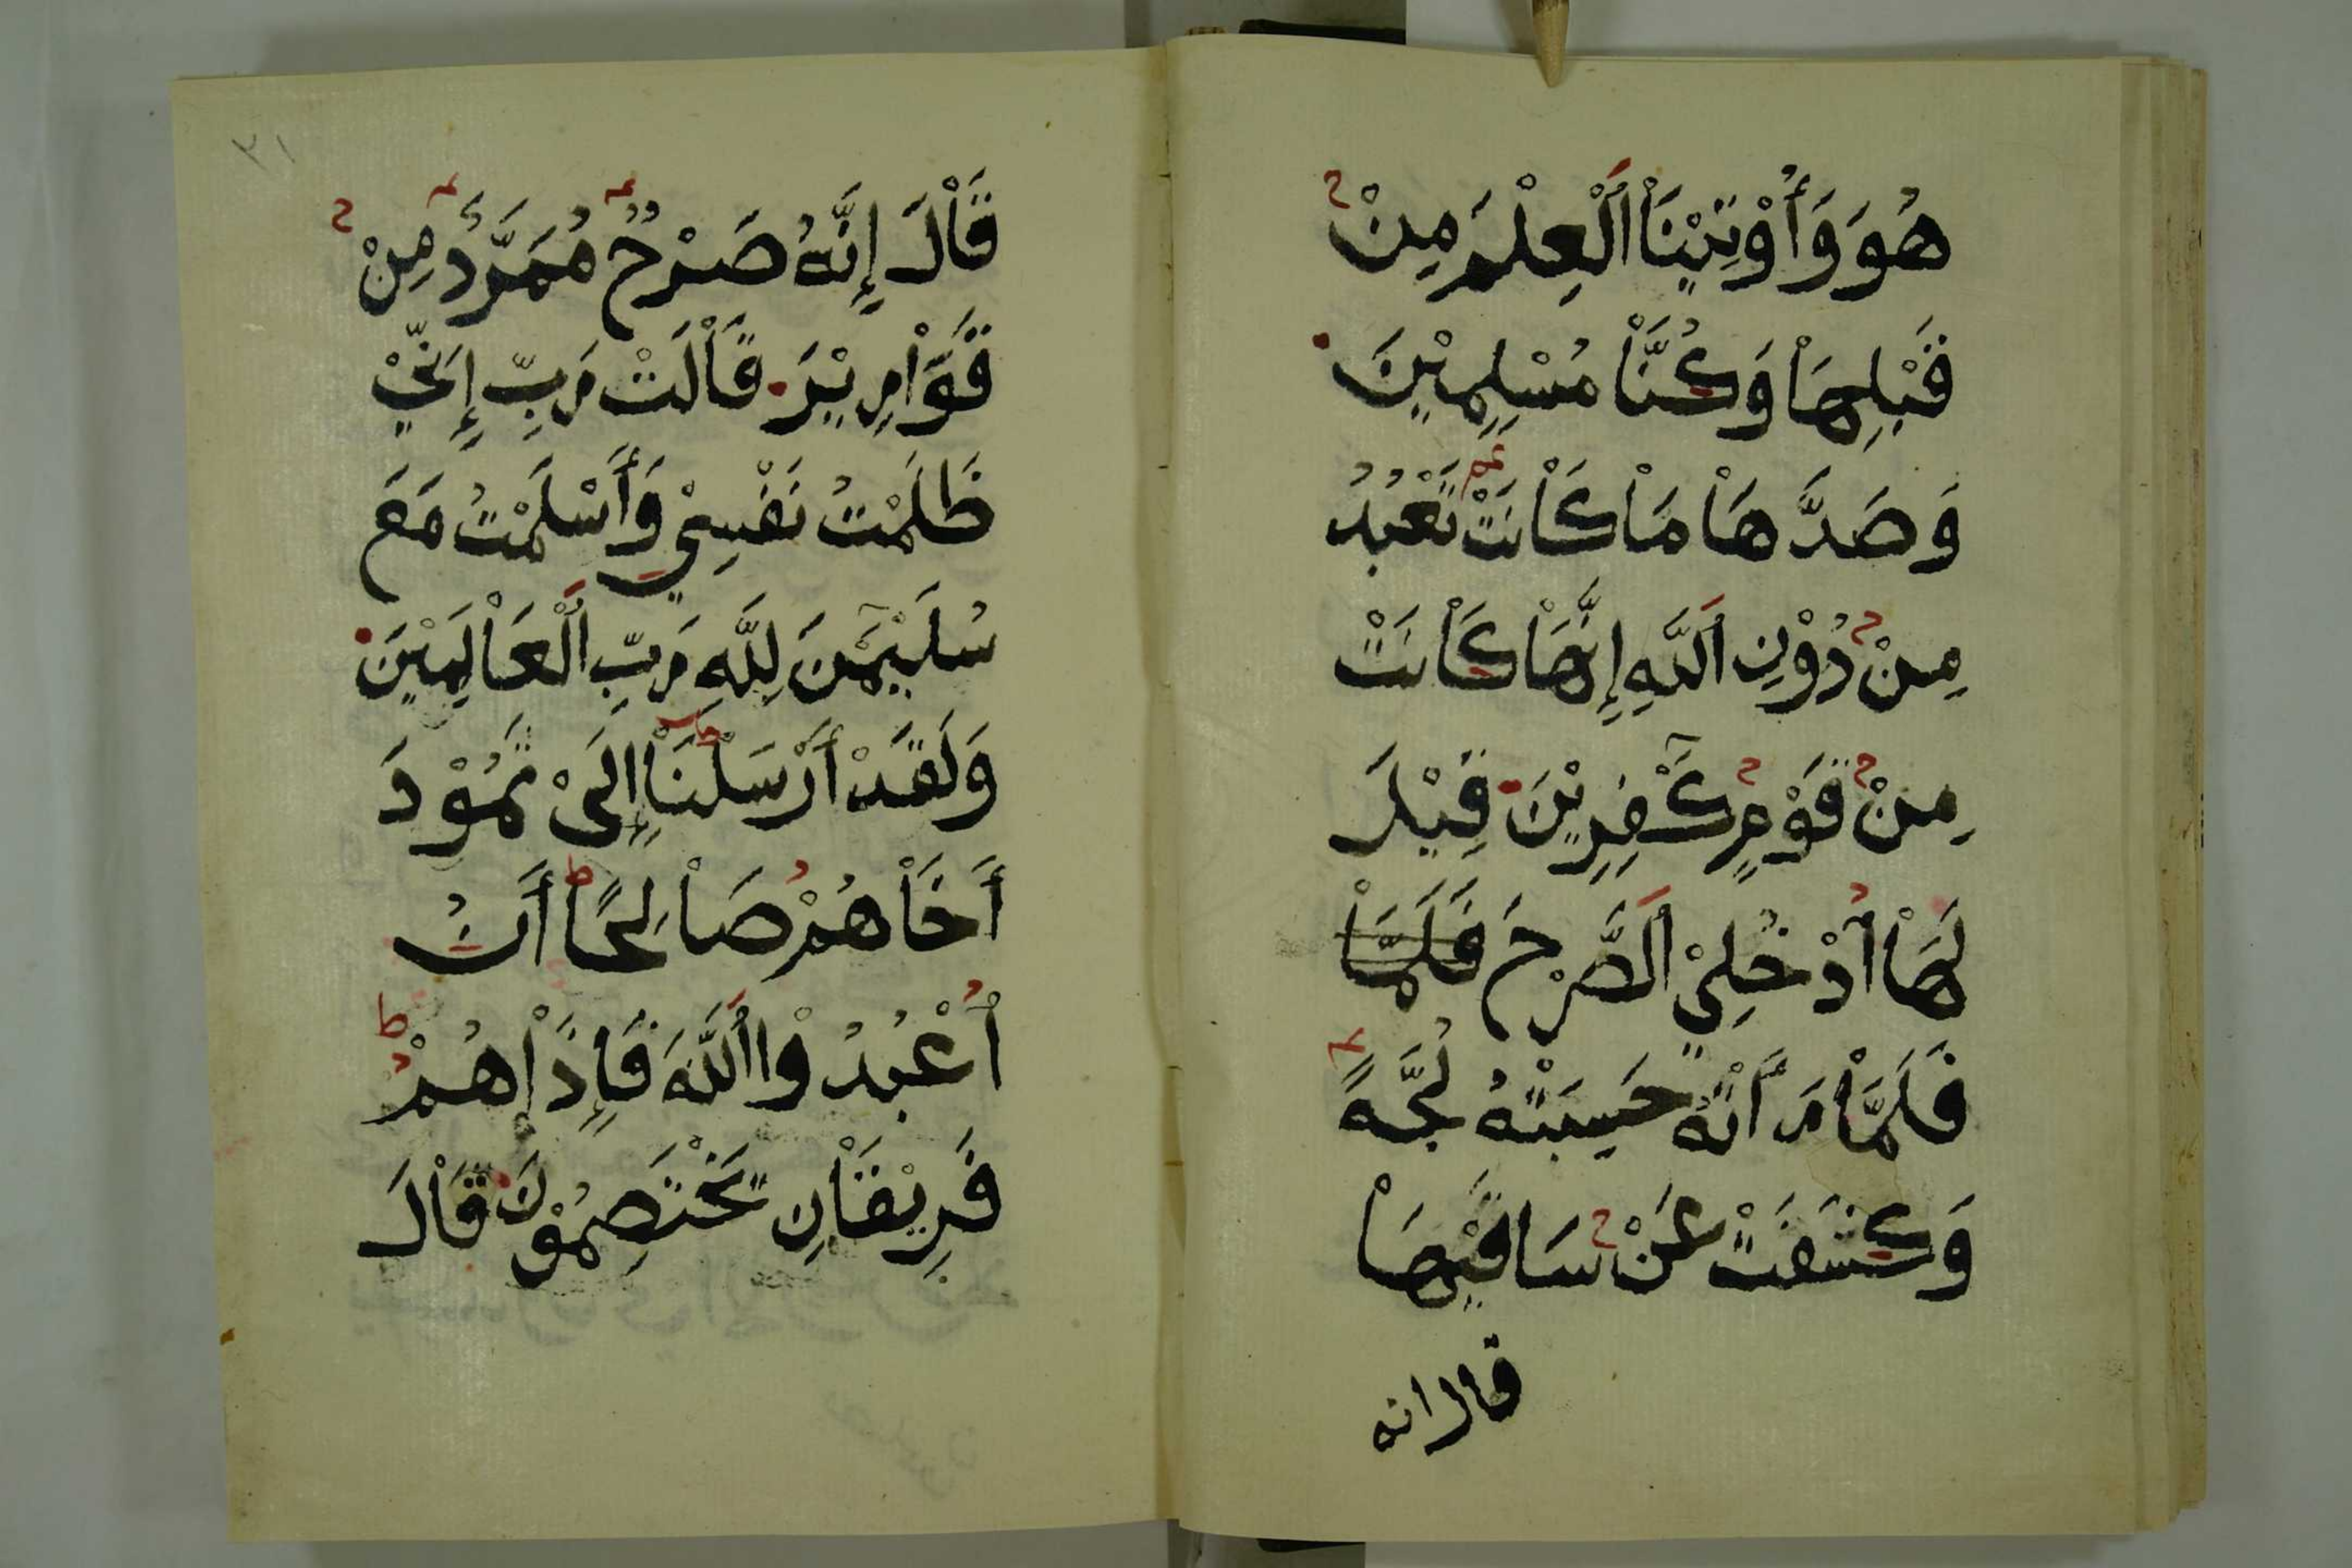 هُوَ وَأُوْتِيْنَاْ اَلْعِلْمَ مِنْ
قَبْلِهَاْ وَكُنَّاْ مُسْلِمِيْنَ
وَصَدَّهَاْ مَاْ كَاْنَتْ تَعْبُدُ
مِنْ دُوْنِ اَللَّهِ إِنَّهَاْ كَاْنَتْ
مِنْ قَوْمٍ كَٰفِرِيْنَ قِيْلَ
لَهَاْ اُدْخُلِيْ اَلصَّرْحَ فَلَمَّاْ
فَلَمَّاْ رَأَتْهُ حَسِبَتْهُ لُجَّةً
وَكَشَفَتْ عَنْ سَاقَيْهَاْ
قال انه
٣١
قَاْلَ إِنَّهُ صَرْحٌ مُمَرَّدٌ مِنْ
قَوَاْرِيْرَ قَاْلَتْ رَبِّ إِنِّيْ
ظَلَمْتُ نَفْسِيْ وَأَسْلَمْتُ مَعَ
سُلَيْمَٰنَ لِلَّهِ رَبِّ اَلْعَاْلَمِيْنَ
وَلَقَدْ أَرْسَلْنَاْ إِلَىْ ثَمُوْدَ
أَخَاْهُمْ صَاْلِحًا أَنُ
اُعْبُدُوْا اَللَّهَ فَإِذَاْ هُمْ
فَرِيْقَاْنِ يَخْتَصِمُوْنَ قَاْلَ